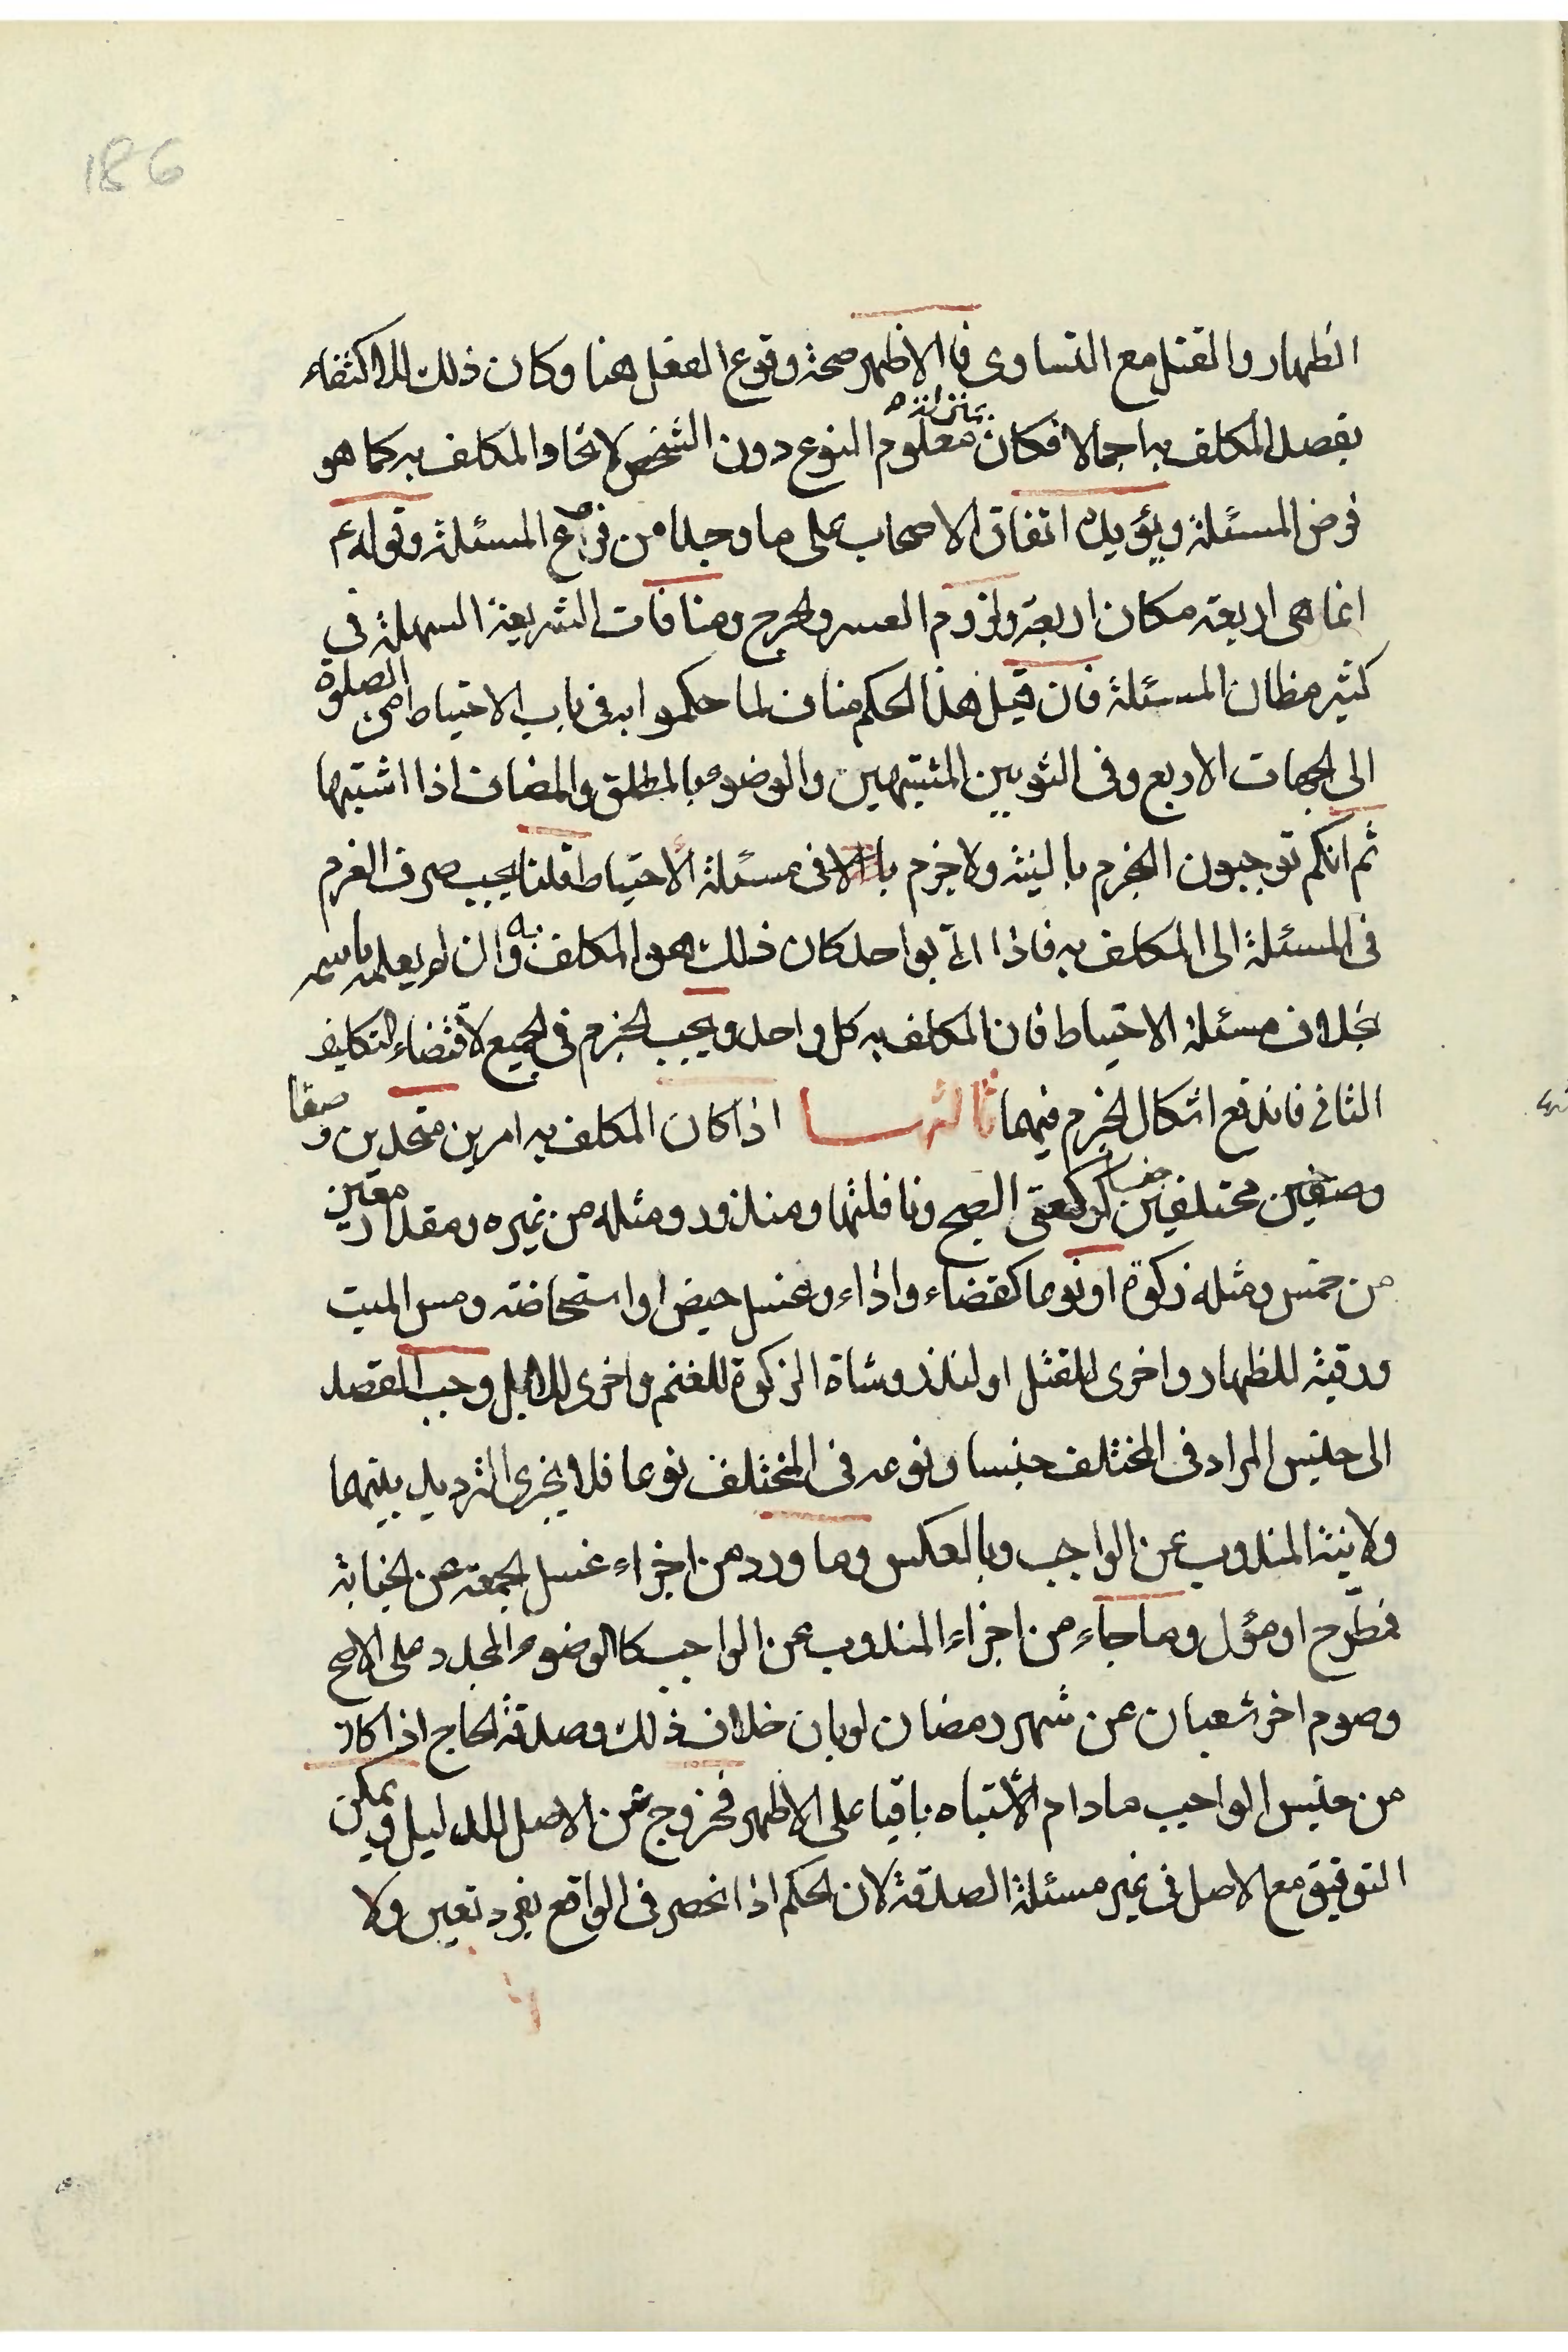 186
الظهار والقتل مع التساوى فالاظهر صحة وقوع الفعل هنا وكان ذلك للاكتفاء
بقصد المكلف به اجمالا فكان بمنزلة معلوم النوع دون الشخص لاتحاد المكلف به كما هو
فرض المسئلة ويؤيده اتفاق الاصحاب على ما وجدنا من فروع المسئلة وقوله ع
انما هى اربعة مكان اربعة ولزوم العسر والحرج ومنافات الشريعة السهلة فى
كثير مظان المسئلة فان قيل هذا الحكم مناف لما حكموا به فى باب الاحتياط من الصلوة
الى الجهات الاربع وفى الثوبين المشتبهين والوضوء بالمطلق والمضاف اذا اشتبها
ثم انكم توجبون الجزم بالنية ولا جزم فى مسئلة الاحتياط قلنا يجب صرف العزم
فى المسئلة الى المكلف به فاذا اتى بواحد كان ذلك هو المكلف به وان لم يعلمه باسمه
بخلاف مسئلة الاحتياط فان المكلف به كل واحد ويجب الجزم فى الجميع لاقتضاء التكليف
الثانى فاندفع اشكال الجزم فيهما ثالثها اذا كان المكلف به امرين متحدين صنفا و
وصنفين مختلفين جنسا كركعتى الصبح ونافلتها ومنذور ومثله من غيره ومقدار معين
من خمس ومثله زكوة او نوعا كقضاء واداء وغسل حيض او استحاضة ومس الميت
ورقبة للظهار واخرى للقتل او لنذر وشاة الزكوة للغنم واخرى للابل وجب القصد
الى جنس المراد فى المختلف جنسا ونوعه فى المختلف نوعا فلا يجزى الترديد بينهما
ولا نية المندوب عن الواجب وبالعكس وما ورد من اجزاء غسل الجمعة عن الجنابة
فمطرح او مؤل وما جاء من اجزاء المندوب عن الواجب كالوضوء المجدد على الاصح
وصوم اخر شعبان عن شهر رمضان لو بان خلاف ذلك وصدقة الحاج اذا كان
من جنس الواجب مادام الاشتباه باقيا على الاظهر فخروج عن الاصل للدليل ويمكن
التوفيق مع الاصل فى غير مسئلة الصدقة لان الحكم اذا انحصر فى الواقع بفرد تعين ولا